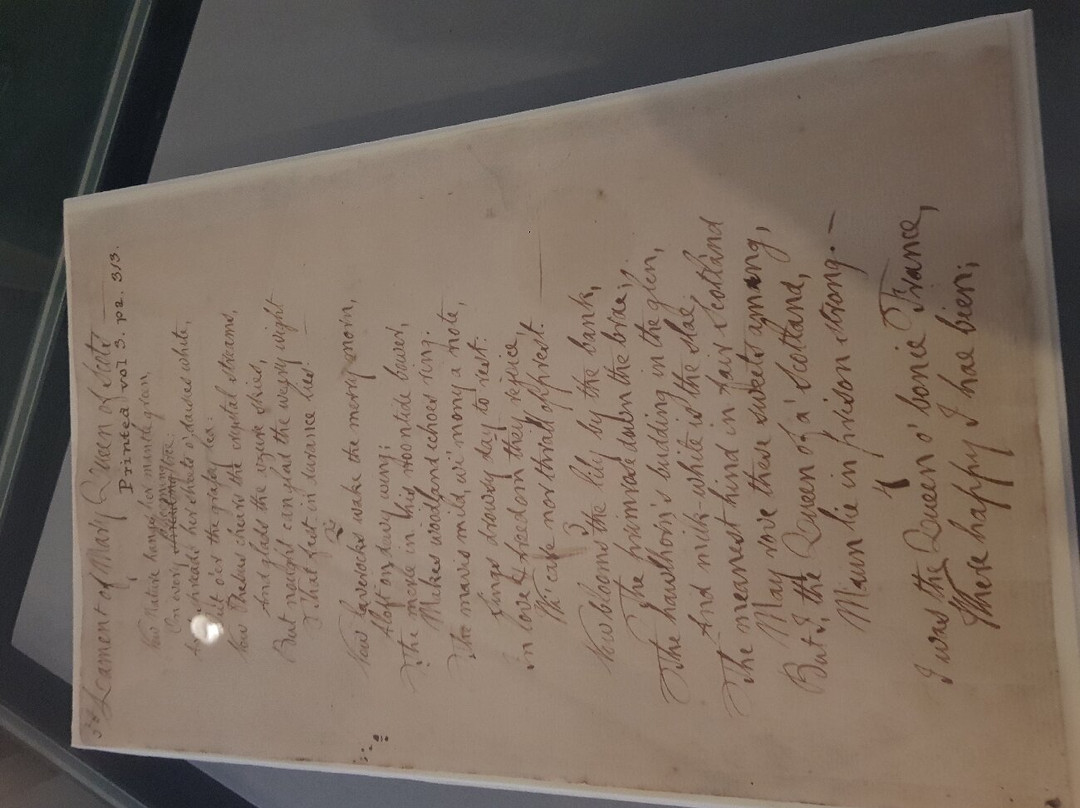 Lament of Mary Queen of Scots
Printed vol 3. pz. 313.
Now Nature hangs her mantle green
On every blooming tree,
And spreads her sheets o' daisies white
Out o'er the grassy lea:
Now Phebus chears the crystal streams,
And glads the azure skies,
But nought can glad the weary wight
That fast in durance lies
2
Now laverocks wake the merry morn,
Aloft on dewy wing;
The merle in his noontide bower,
Makes woodland echoes ring:
The mavis mild, wi' mony a note,
Sings drowsy day to rest:
In love & freedom they rejoice,
Wi' care nor thrall opprest.
3
Now blooms the lily by the bank,
The primrose down the brae;
The hawthorn's budding in the glen,
And milk-white is the slae
The meanest hind in fair Scotland
May rove these sweets amang,
But I, the Queen of a' Scotland,
Maun lie in prison strong. —
4
I was the Queen o' bonie France,
Where happy I hae been;